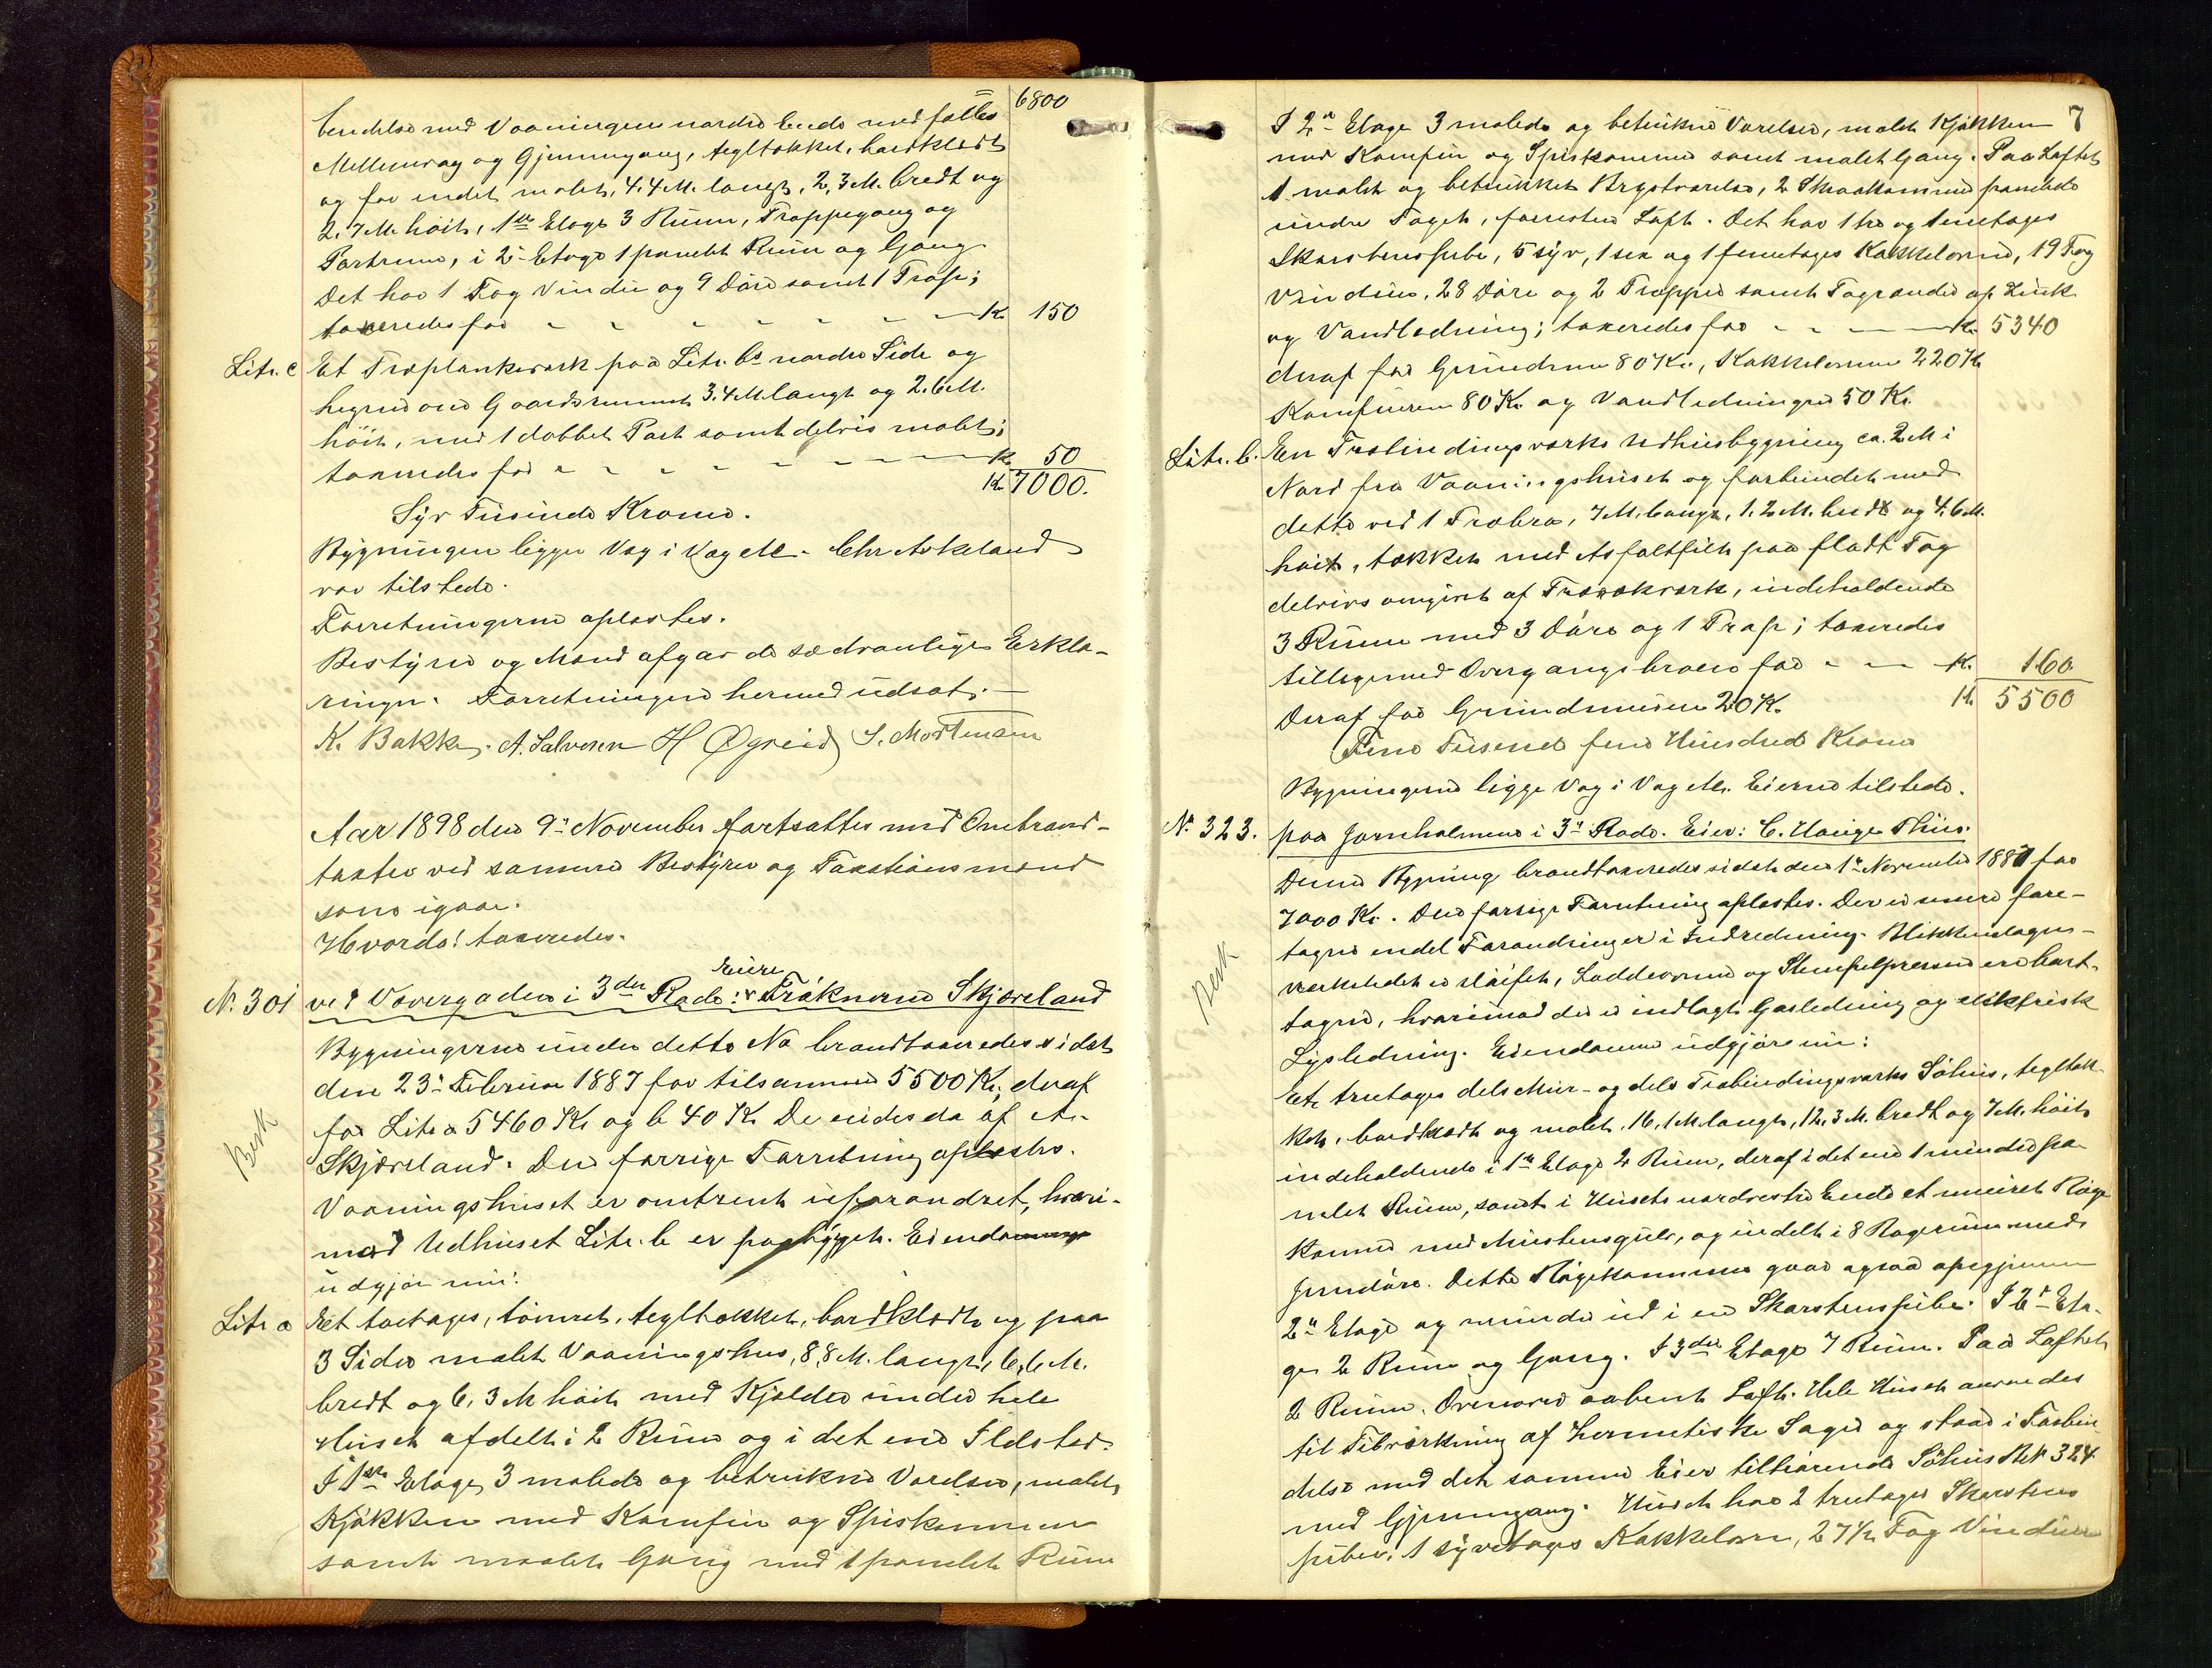 6800
bindelse med Vaaningens nordre Ende med fælles
Mellemvæg og Gjennemgang, tegltækket, bordklædt
og for endel malet, 4,4 M. langt, 2,3 M. bredt og
2,7 M. høit, 1ste Etage 3 Rum, Trappegang og
Portrum, i 2den Etage 1 panelet Rum og Gang.
Det har 1 Fag Vindu og 9 Døre samt 1 Trap;
taxeredes for - - - - - - - Kr. 150
Litr. c Et Træplankeværk paa Litr. bs nordre Side og
Gaardsrummet 3,4 M langt og 2,6 M.
høit, med 1 dobbelt Port samt delvis malet;
taxeredes for - - - - - - - Kr. 50
Kr. 7000.
Syv Tusinde Kroner.
Bygningen ligger Væg i Væg M. Chr Askeland
var tilstede.
Forretningerne oplæstes.
Bestyrer og Mænd afgav de sædvanlige Erklæ-
ringer. Forretningen hermed udsat. —
K. Bakke. A. Salvesen H Øgreid S. Mortensen
Aar 1898 den 9de November fortsattes med Ombrand-
taxter ved samme Bestyrer og Taxstionsmænd
som igaar.
Hvorda! taxeredes.
Eiere
N. 301 ved Vovergaden i 3die Rode: Frøknerne Skjæveland
Bygningerne under dette No brandtaxeredes sidst
den 23de Februar 1887 for tilsammen 5500 Kr., deraf
for Litr a 5460 Kr og b 40 Kr. De eiedes da af A.
Berk
Skjæveland. Den forrige Forretning oplæstes.
Vaaningshuset er omtrent uforandret, hvori-
mod Udhuset Litr. b er paabygget. Eiendommen
udgjør nu:
Litr a Et toetages, tømret, tegltækket, bordklædt og paa
3 Sider malet Vaaningshus, 8,8 M. langt, 6,6 M.
bredt og 6,3 M høit med Kjælder under hele
Huset afdelt i 2 Rum og i det ene Ildsted.
I 1ste Etage 3 malede og betrukne Værelser, malet
Kjøkken med Komfur og Spiskammer
samt malet Gang med 1 panelet Rum
7
I 2den Etage 3 malede og betrukne Værelser, malet Kjøkken
med Komfur og Spiskammer samt malet Gang. Paa Loftet
1 malet og betrukket Brystværelse, 2 Skraakammer panelede
under Taget, forresten Loft. Det har 1 tre og 1 enetages
Skorstenspibe, 5 syv, 1 sex og 1 femetages Kakkelovne, 19 Fag
Vinduer, 28 Døre og 2 Trapper samt Tagrender af Zink
og Vandledning; taxeredes for - - — Kr. 5340
deraf for Grundmur 80 Kr., Kakkelovne 220 Kr
Komfuren 80 Kr. og Vandledningen 50 Kr.
Litr. b. En Træbindingsværks Udhusbygning ca. 2 M i
Nord fra Vaaningshuset og forbundet med
dette ved 1 Træbro, 7 M. langt, 1,2 M. bredt og 4,6 M.
høit, tækket med Asfaltfilt paa fladt Tag
delvis omgivet af Trærækværk, indeholdende
3 Rum med 3 Døre og 1 Trap; taxeredes
tilligemed Overgangsbroen for - - — Kr. 160
Deraf for Grundmuren 20 Kr. Kr. 5500
Fem Tusend fem Hundred Kroner
Bygningerne ligge Væg i Væg M. Eierne tilstede.
N. 323. paa Jorenholmen i 3die Rode. Eier: C. Houge Thiis.
Denne Bygning brandtaxeredes sidst den 1ste November 1887 for
7000 Kr. Den forrige Forretning oplæstes. Der er senere fore-
tagne endel Forandringer i Indredning. Blikkenslager-
Berk
værkstedet er sløifet, Loddeovnene og Stempelpressen ere bort-
tagne, hvorimod der er indlagt Gasledning og elektrisk
Lysledning. Eiendommen udgjør nu:
Et treetages dels Mur- og dels Træbindingsværks Søhus, tegltæk-
ket, bordklædt og malet, 16,1 M langt, 12,3 M. bredt og 7 M. høit
indeholdende i 1ste Etage 2 Rum, deraf i det ene 1 mindre pa-
nelet Rum, samt i Husets nordvestre Ende et muret Røge-
kammer med Murstensgulv, og inddelt i 8 Røgerum med
Jerndøre. Dette Røgekammer gaar ogsaa op igjennem
2den Etage og munder ud i en Skorstenspibe. I 2den Eta-
ge 2 Rum og Gang. I 3die Etage 7 Rum. Paa Loftet
2 Rum. Ovenover aabent Loft. Hele Huset anvendes
til Tilvirkning af hermetiske Sager og staar i Forbin-
delse med det samme Eier tilhørende Søhus No 324
med Gjennemgang. Huset har 2 treetages Skorstens-
piber, 1 syvetages Kakkelovn, 27½ Fag Vinduer